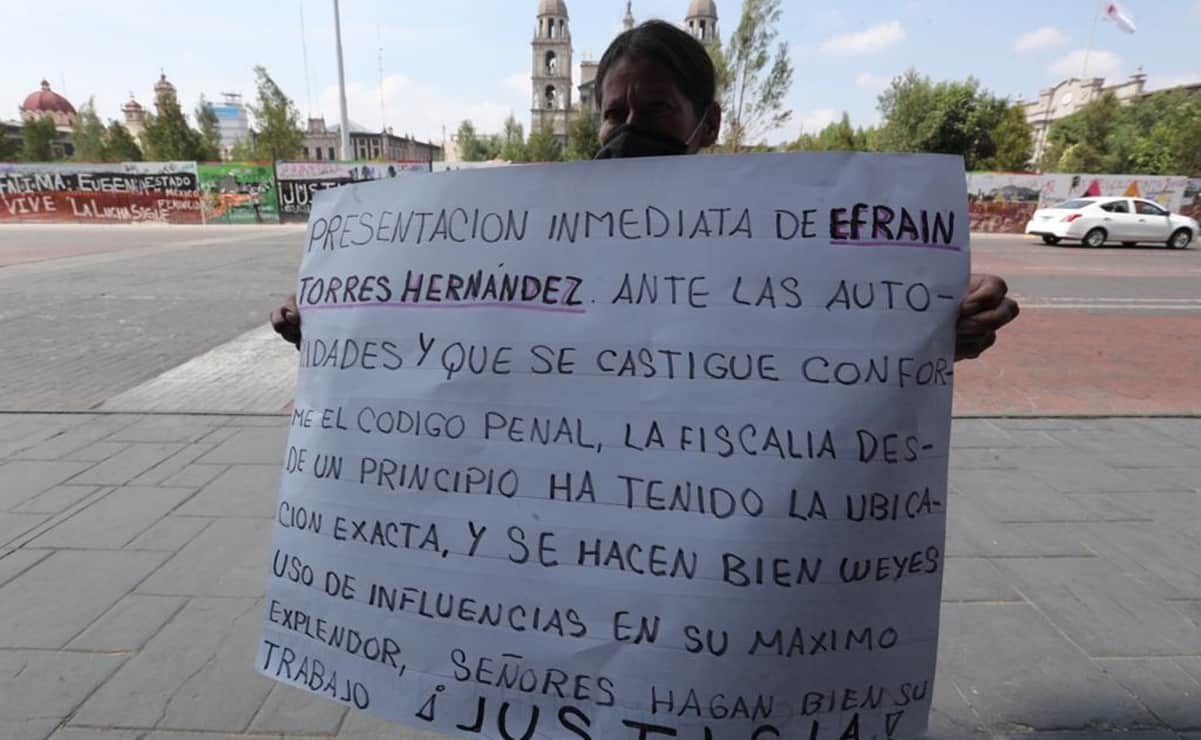 PRESENTACION INMEDIATA DE EFRAIN
TORRES HERNÁNDEZ. ANTE LAS AUTO-
IDADES Y QUE SE CASTIGUE CONFOR-
ME EL CODIGO PENAL, LA FISCALIA DES-
DE UN PRINCIPIO HA TENIDO LA UBICA-
CION EXACTA, Y SE HACEN BIEN WEYES
USO DE INFLUENCIAS EN SU MAXIMO
EXPLENDOR, SEÑORES HAGAN BIEN SU
TRABAJO ¡JUSTICIA!
EUGENIA ESTADO
MÉXICO
VIVE "LA LUCHA SIGUE
JUST